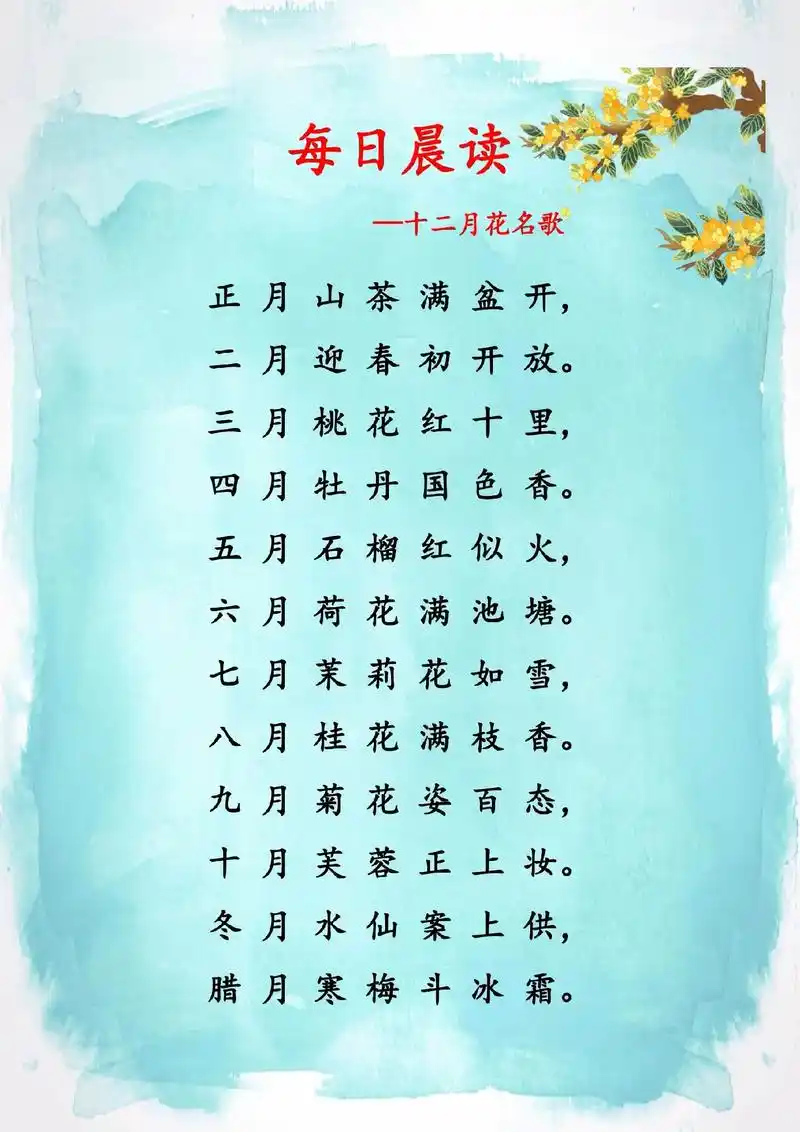 每日晨读
—十二月花名歌
正月山茶满盆开,
二月迎春初开放。
三月桃花红十里,
四月牡丹国色香。
五月石榴红似火,
六月荷花满池塘。
七月茉莉花如雪,
八月桂花满枝香。
九月菊花姿百态,
十月芙蓉正上妆。
冬月水仙案上供,
腊月寒梅斗冰霜。